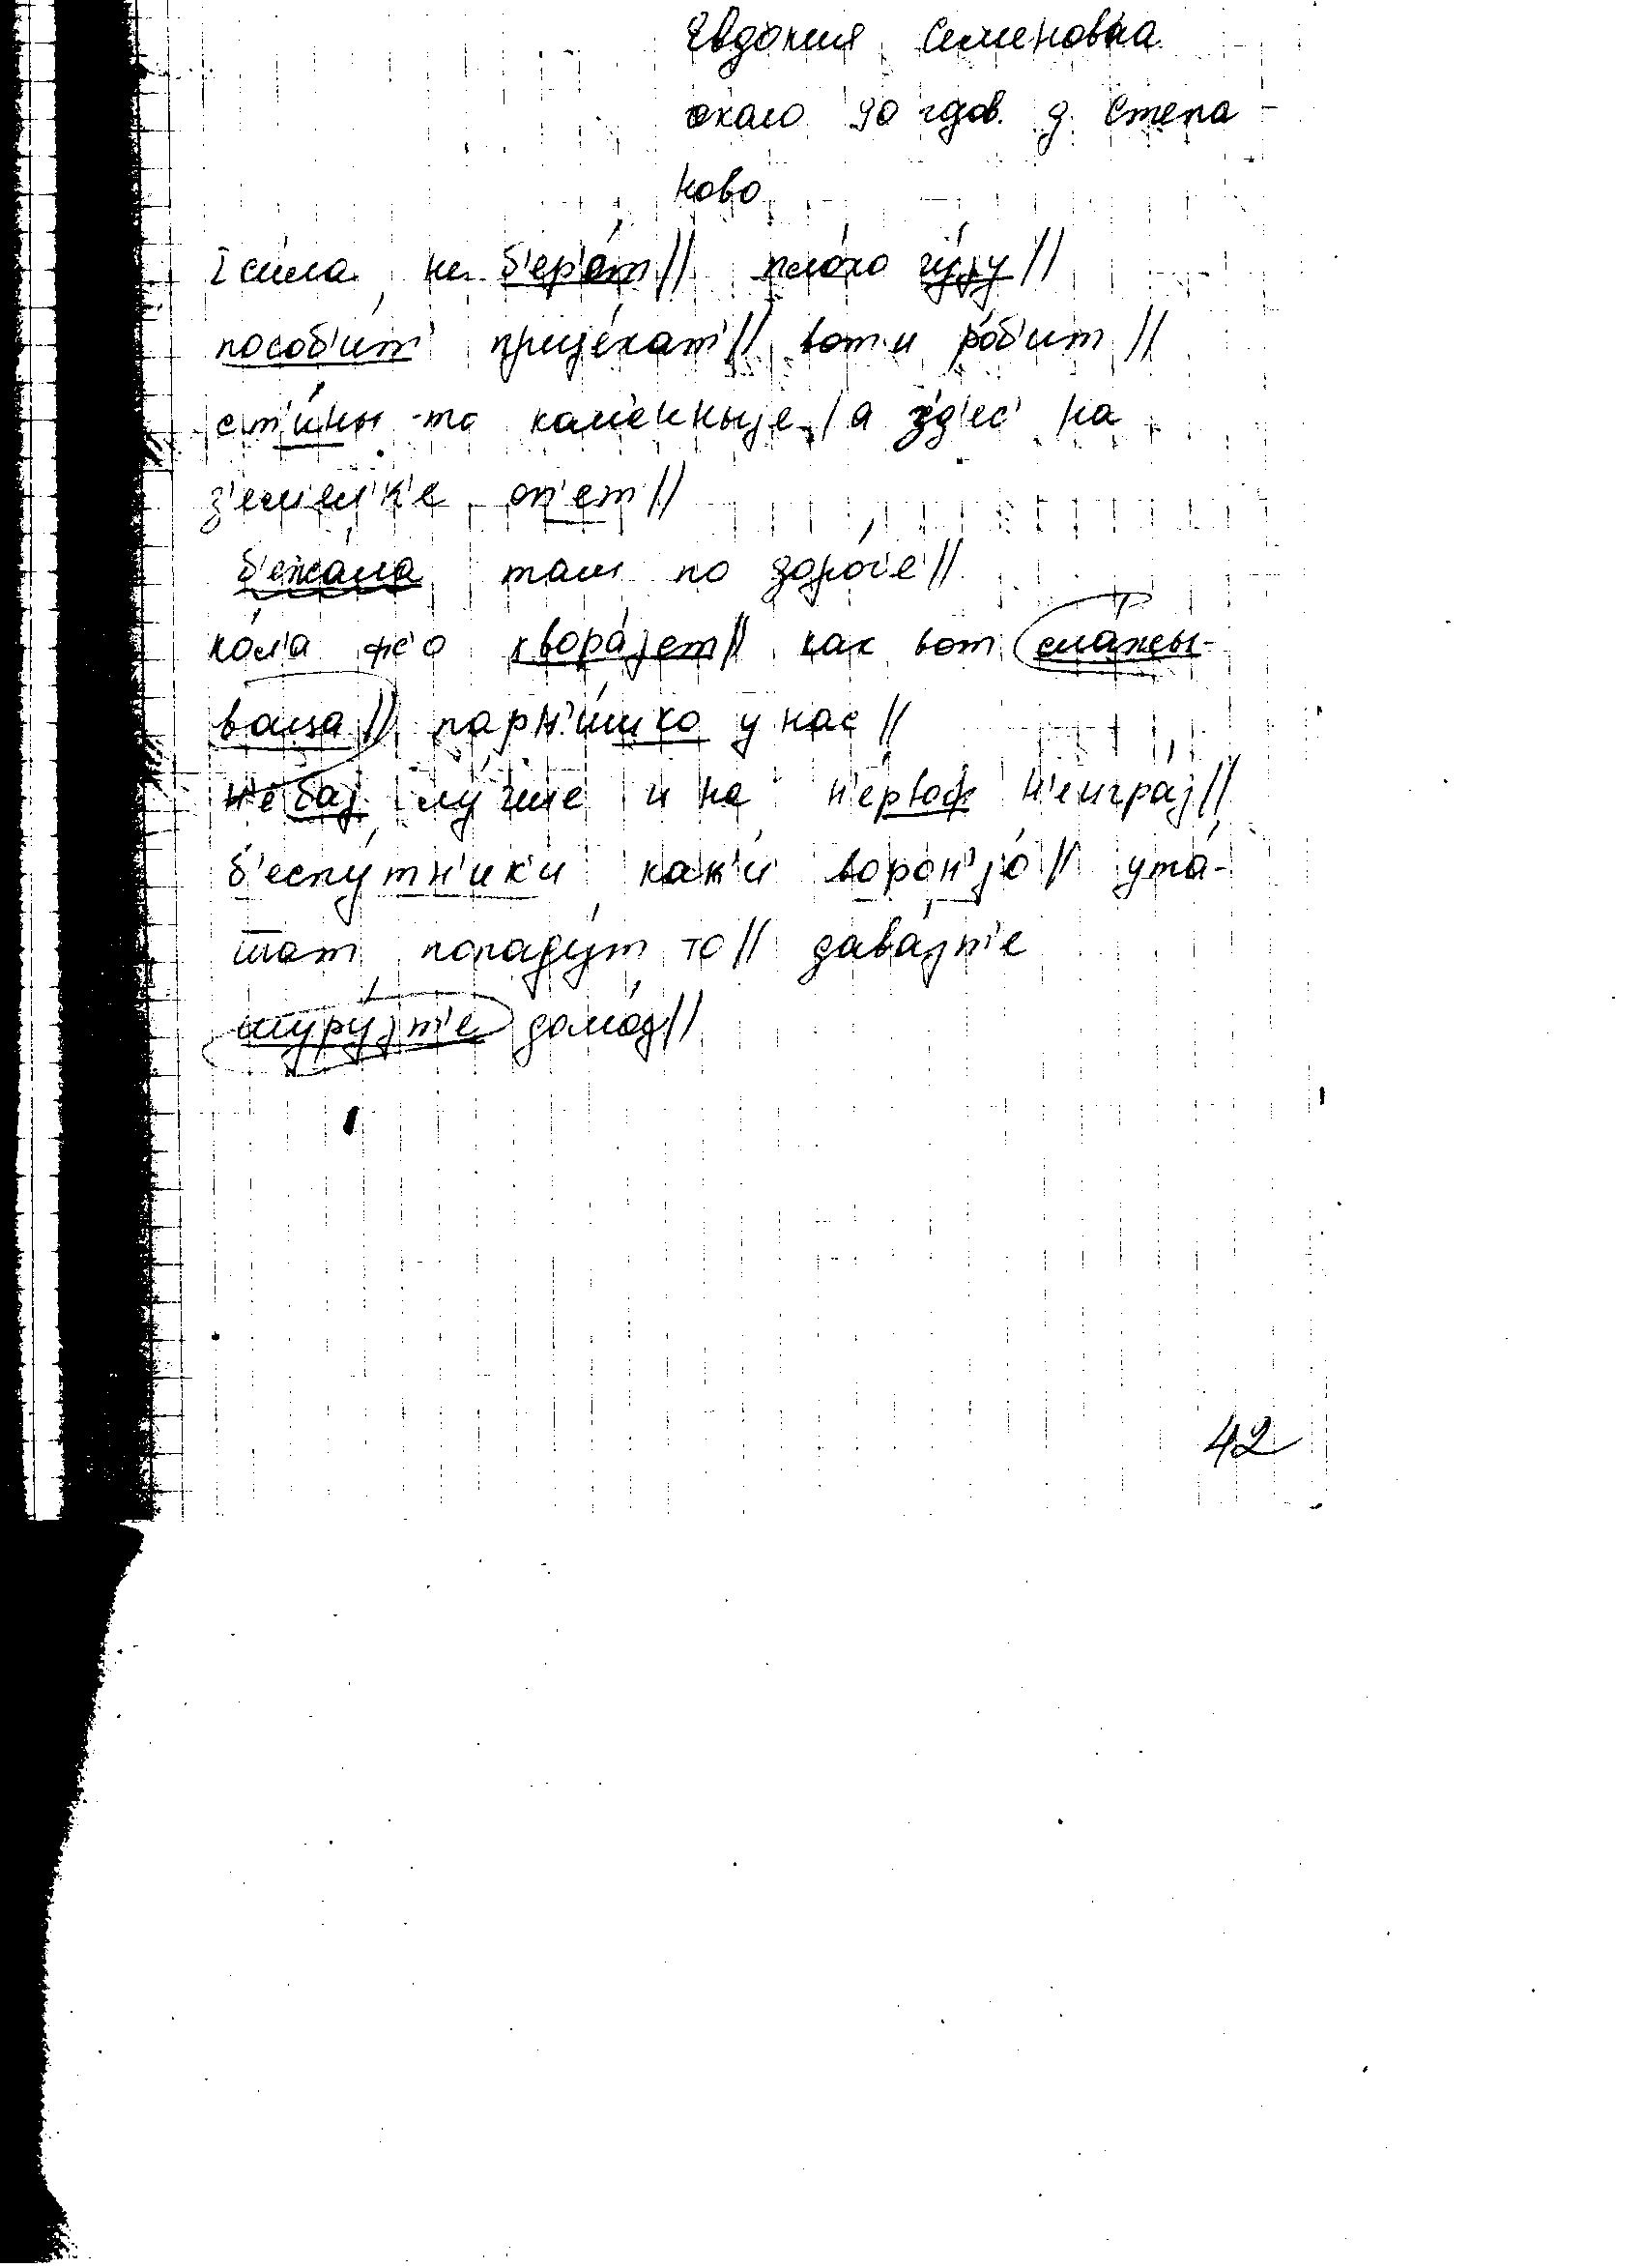 Евдокия Семеновна
около 90 гдов. д. Степа-
ново
сила не б'ер'о́т // пло́хо чу́jу //
пособ'и́т' приjе́хат' // вот и ро́б'ит //
ст'и́ны-то кам'енныjе / а зд'ес' на
з'емел'к'е оп'ет //
б'ежа́ла там по доро́г'е //
ко́л'а фс'о хвора́jет // как вот сла́жы-
ваца // парн'и́шко у нас //
н'е баj лу́чше и на н'е́рвоф н'е игра́j //
б'еспу́тн'ик'и как'и́ ворон'jо́ // ута́-
шат попаду́т то // дава́jт'е
шуру́jт'е домо́j //
42